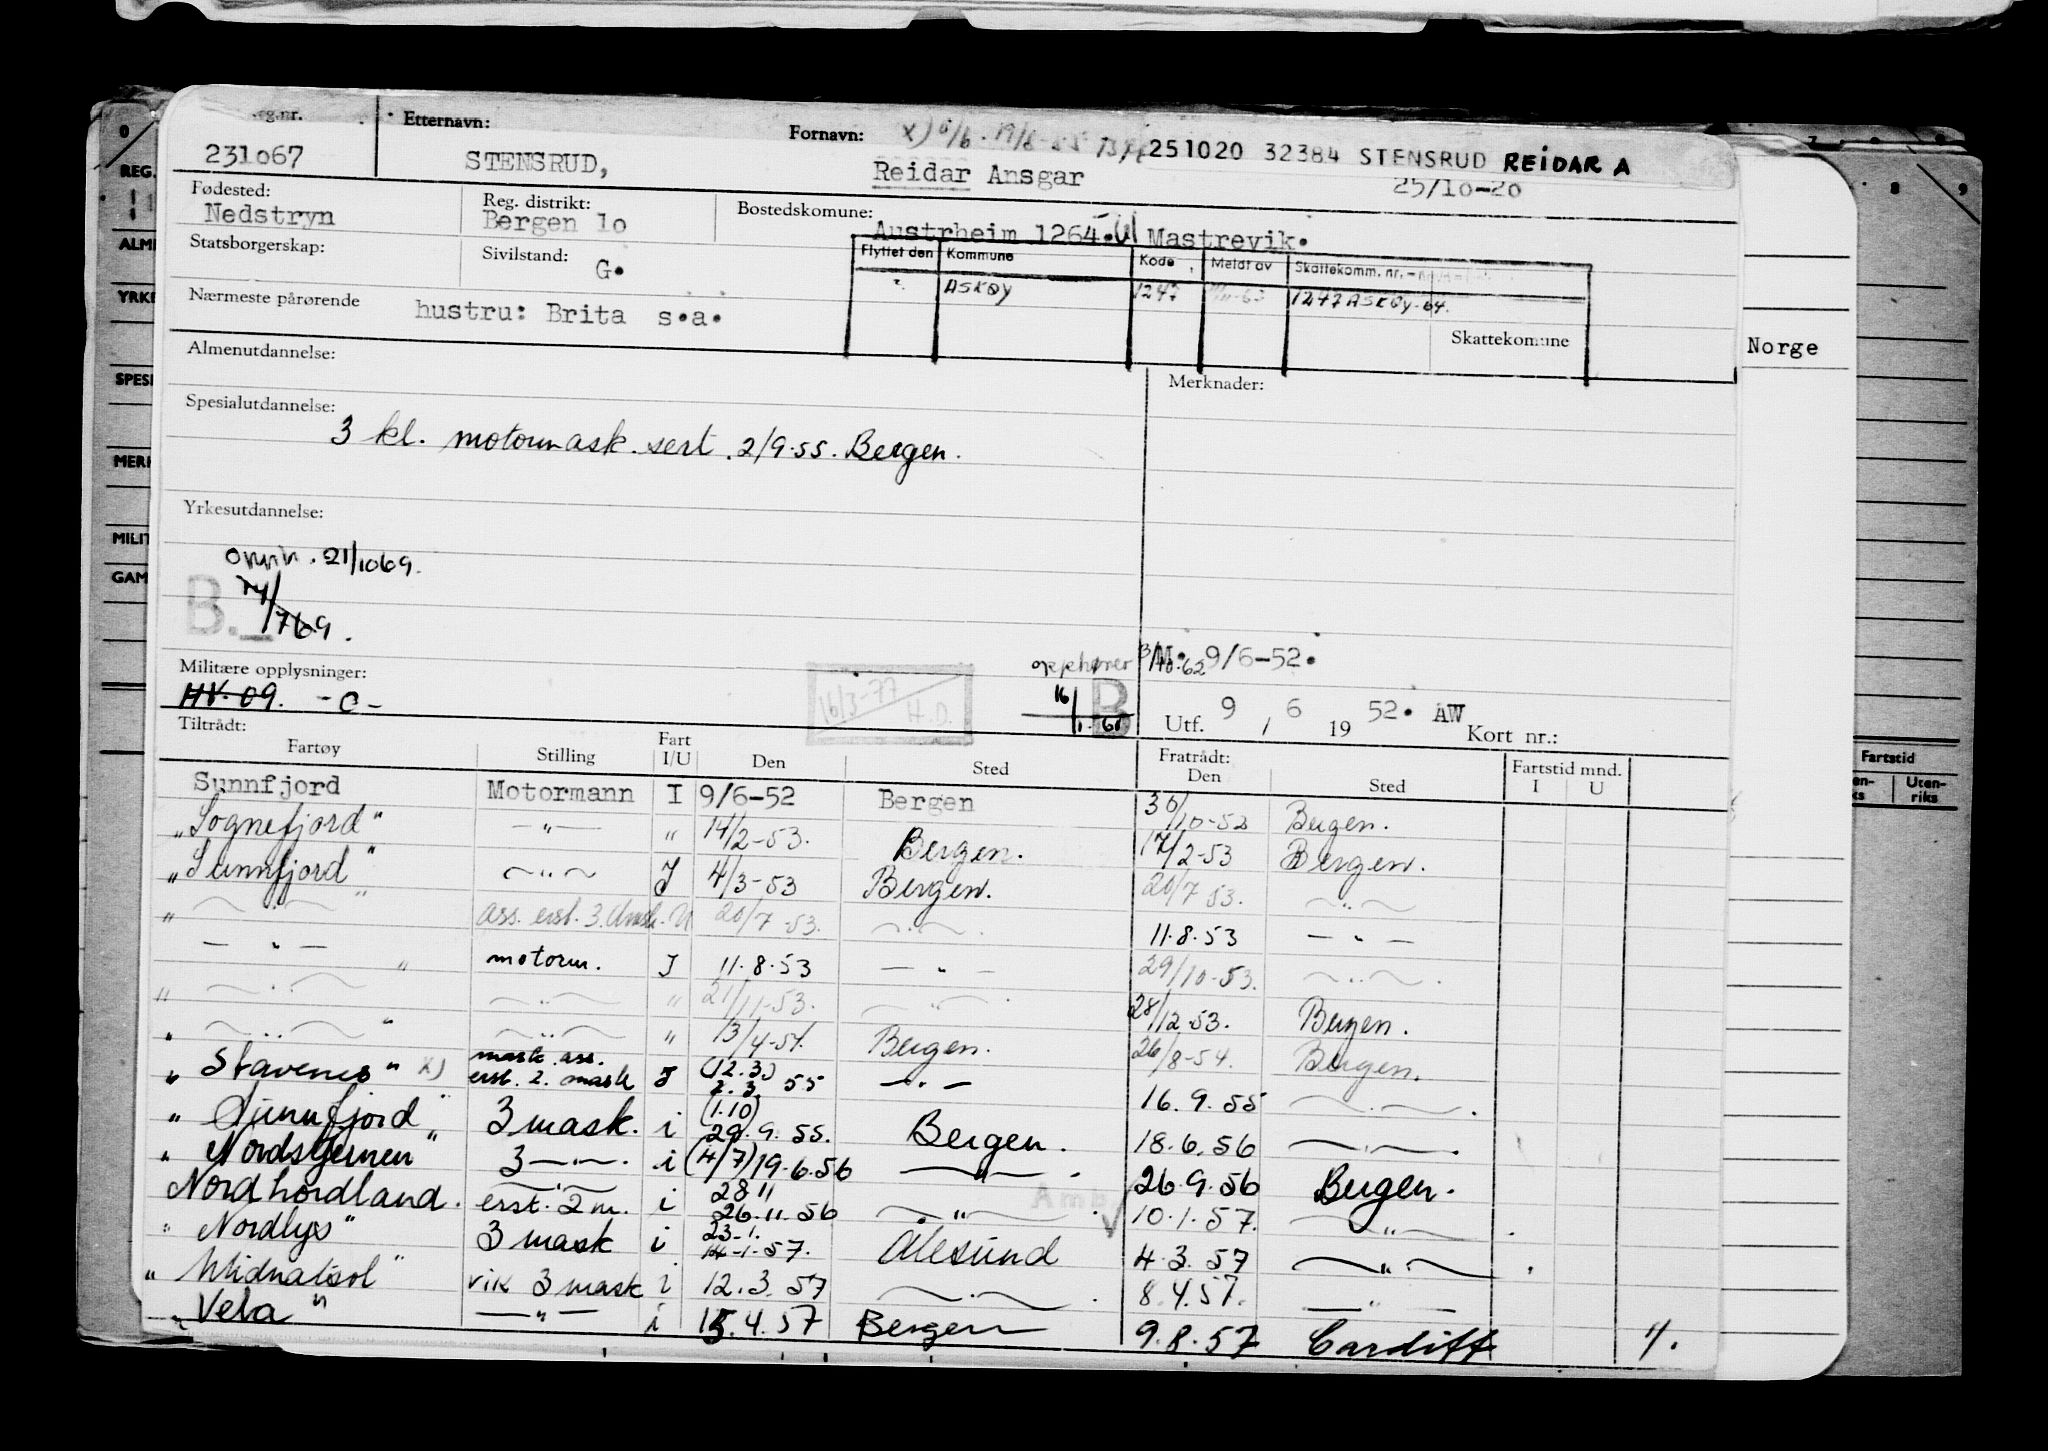 Reg.nr. Etternavn: Fornavn: 251020 32384 STENSRUD REIDAR A
231067 STENSRUD, Reidar Ansgar 25/10-20
Fødested: Reg. distrikt: Bostedskomune:
Nedstryn Bergen 10 Austrheim 1264. Mastrevik.
Statsborgerskap: Sivilstand: G. Flyttet den Kommune Kode Meldt av Skattekomm. nr.
ASKØY 1247 1247 ASKØY-64.
Nærmeste pårørende hustru: Brita s.a.
Skattekomune
Norge
Almenutdannelse: Merknader:
Spesialutdannelse:
3 kl. motormask. sert. 2/9-55. Bergen.
Yrkesutdannelse:
omm. 21/1069.
B. 769.
Militære opplysninger: opphører M. 9/6-52.
HV. 09. -0- 16/3-77 H.D. 16/1-61 B Utf. 9 / 6 19 52. AW Kort nr.:
Tiltrådt: Fratrådt:
Fartøy Stilling Fart I/U Den Sted Den Sted Fartstid mnd. I U
Sunnfjord Motormann I 9/6-52 Bergen 30/10-52 Bergen.
„Sognefjord" —"— " 14/2-53. Bergen. 17/2-53 Bergen.
„Sunnfjord" ~"~ I 4/3-53 Bergen. 20/7 53. ~"~
" ~"~ " ass. erst. 3. mask. U 20/7-53. ~"~ 11.8.53 — " —
— " — " motorm. I 11.8.53 — " — 29/10-53. ~"~
" ~"~ ~"~ " 21/11-53. ~"~ 28/12.53. Bergen.
" ~"~ " ~"~ " 13/4-54. Bergen. 26/8-54. Bergen.
„ Stavenes " x) mask. ass. erst. 2. mask I (12.3) 2.3. 55 —"— 16.9.55 ~"~
" Sunnfjord " 3 mask. i (1.10) 29.9.55. Bergen. 18.6.56 ~"~
" Nordstjernen " 3 —"—. i (4/7) 19.6.56 —"— 26.9.56 Bergen.
Nordhordland. erst. 2 m. i 28 11 26.11.56 ~"~ 10.1.57. ~"~
" Nordlys " 3 mask i 23-1. 14-1-57. Ålesund 4.3.57 ~"~
" Midnatsol " vik 3 mask i 12.3.57 ~"~ 8.4.57. —"—
" Vela " —"— i 15.4.57 Bergen 9.8.57 Cardiff
REG.
ALM
YRKE
SPESI
MERK
MILIT
GAM
Fartstid
Uten-riks